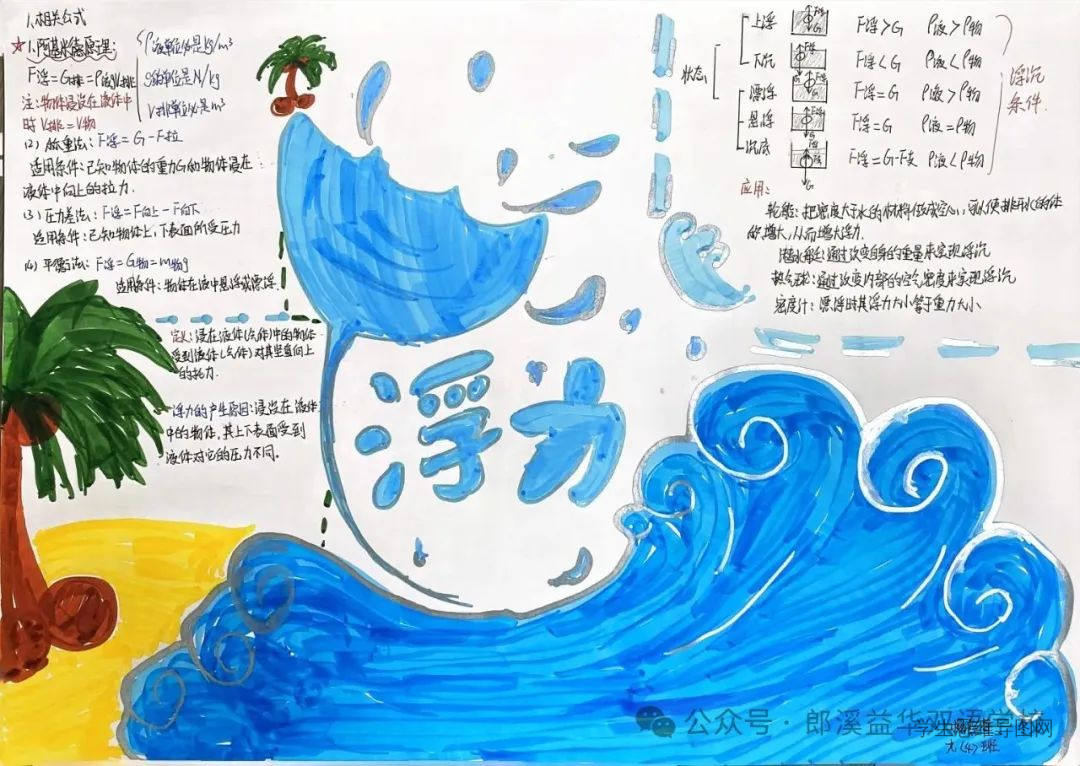 1、相关公式
★1、阿基米德原理：
F浮=G排=ρ液gV排
注：物体浸没在液体中
时V排=V物
ρ液单位是kg/m³
g的单位是N/kg
V排单位是m³
(2) 称重法：F浮=G-F拉
适用条件：已知物体的重力G和物体浸在
液体中向上的拉力.
(3) 压力差法：F浮=F向上-F向下
适用条件：已知物体上,下表面所受压力
(4) 平衡法：F浮=G物=m物g
适用条件：物体在液中悬浮或漂浮.
定义：浸在液体(气体)中的物体
受到液体(气体)对其竖直向上
的托力.
浮力的产生原因：浸没在液体
中的物体,其上下表面受到
液体对它的压力不同.
浮力
状态
上浮 F浮>G ρ液>ρ物
下沉 F浮<G ρ液<ρ物
漂浮 F浮=G ρ液>ρ物
悬浮 F浮=G ρ液=ρ物
沉底 F浮=G-F支 ρ液<ρ物
浮沉
条件.
应用：
轮船：把密度大于水的材料做成空心,可以使排开水的体
积增大,从而增大浮力.
潜水艇：通过改变自身的重量来实现浮沉
热气球：通过改变内部的空气密度来实现浮沉
密度计：漂浮时其浮力大小等于重力大小
公众号·郎溪益华双语学校
思维导图网